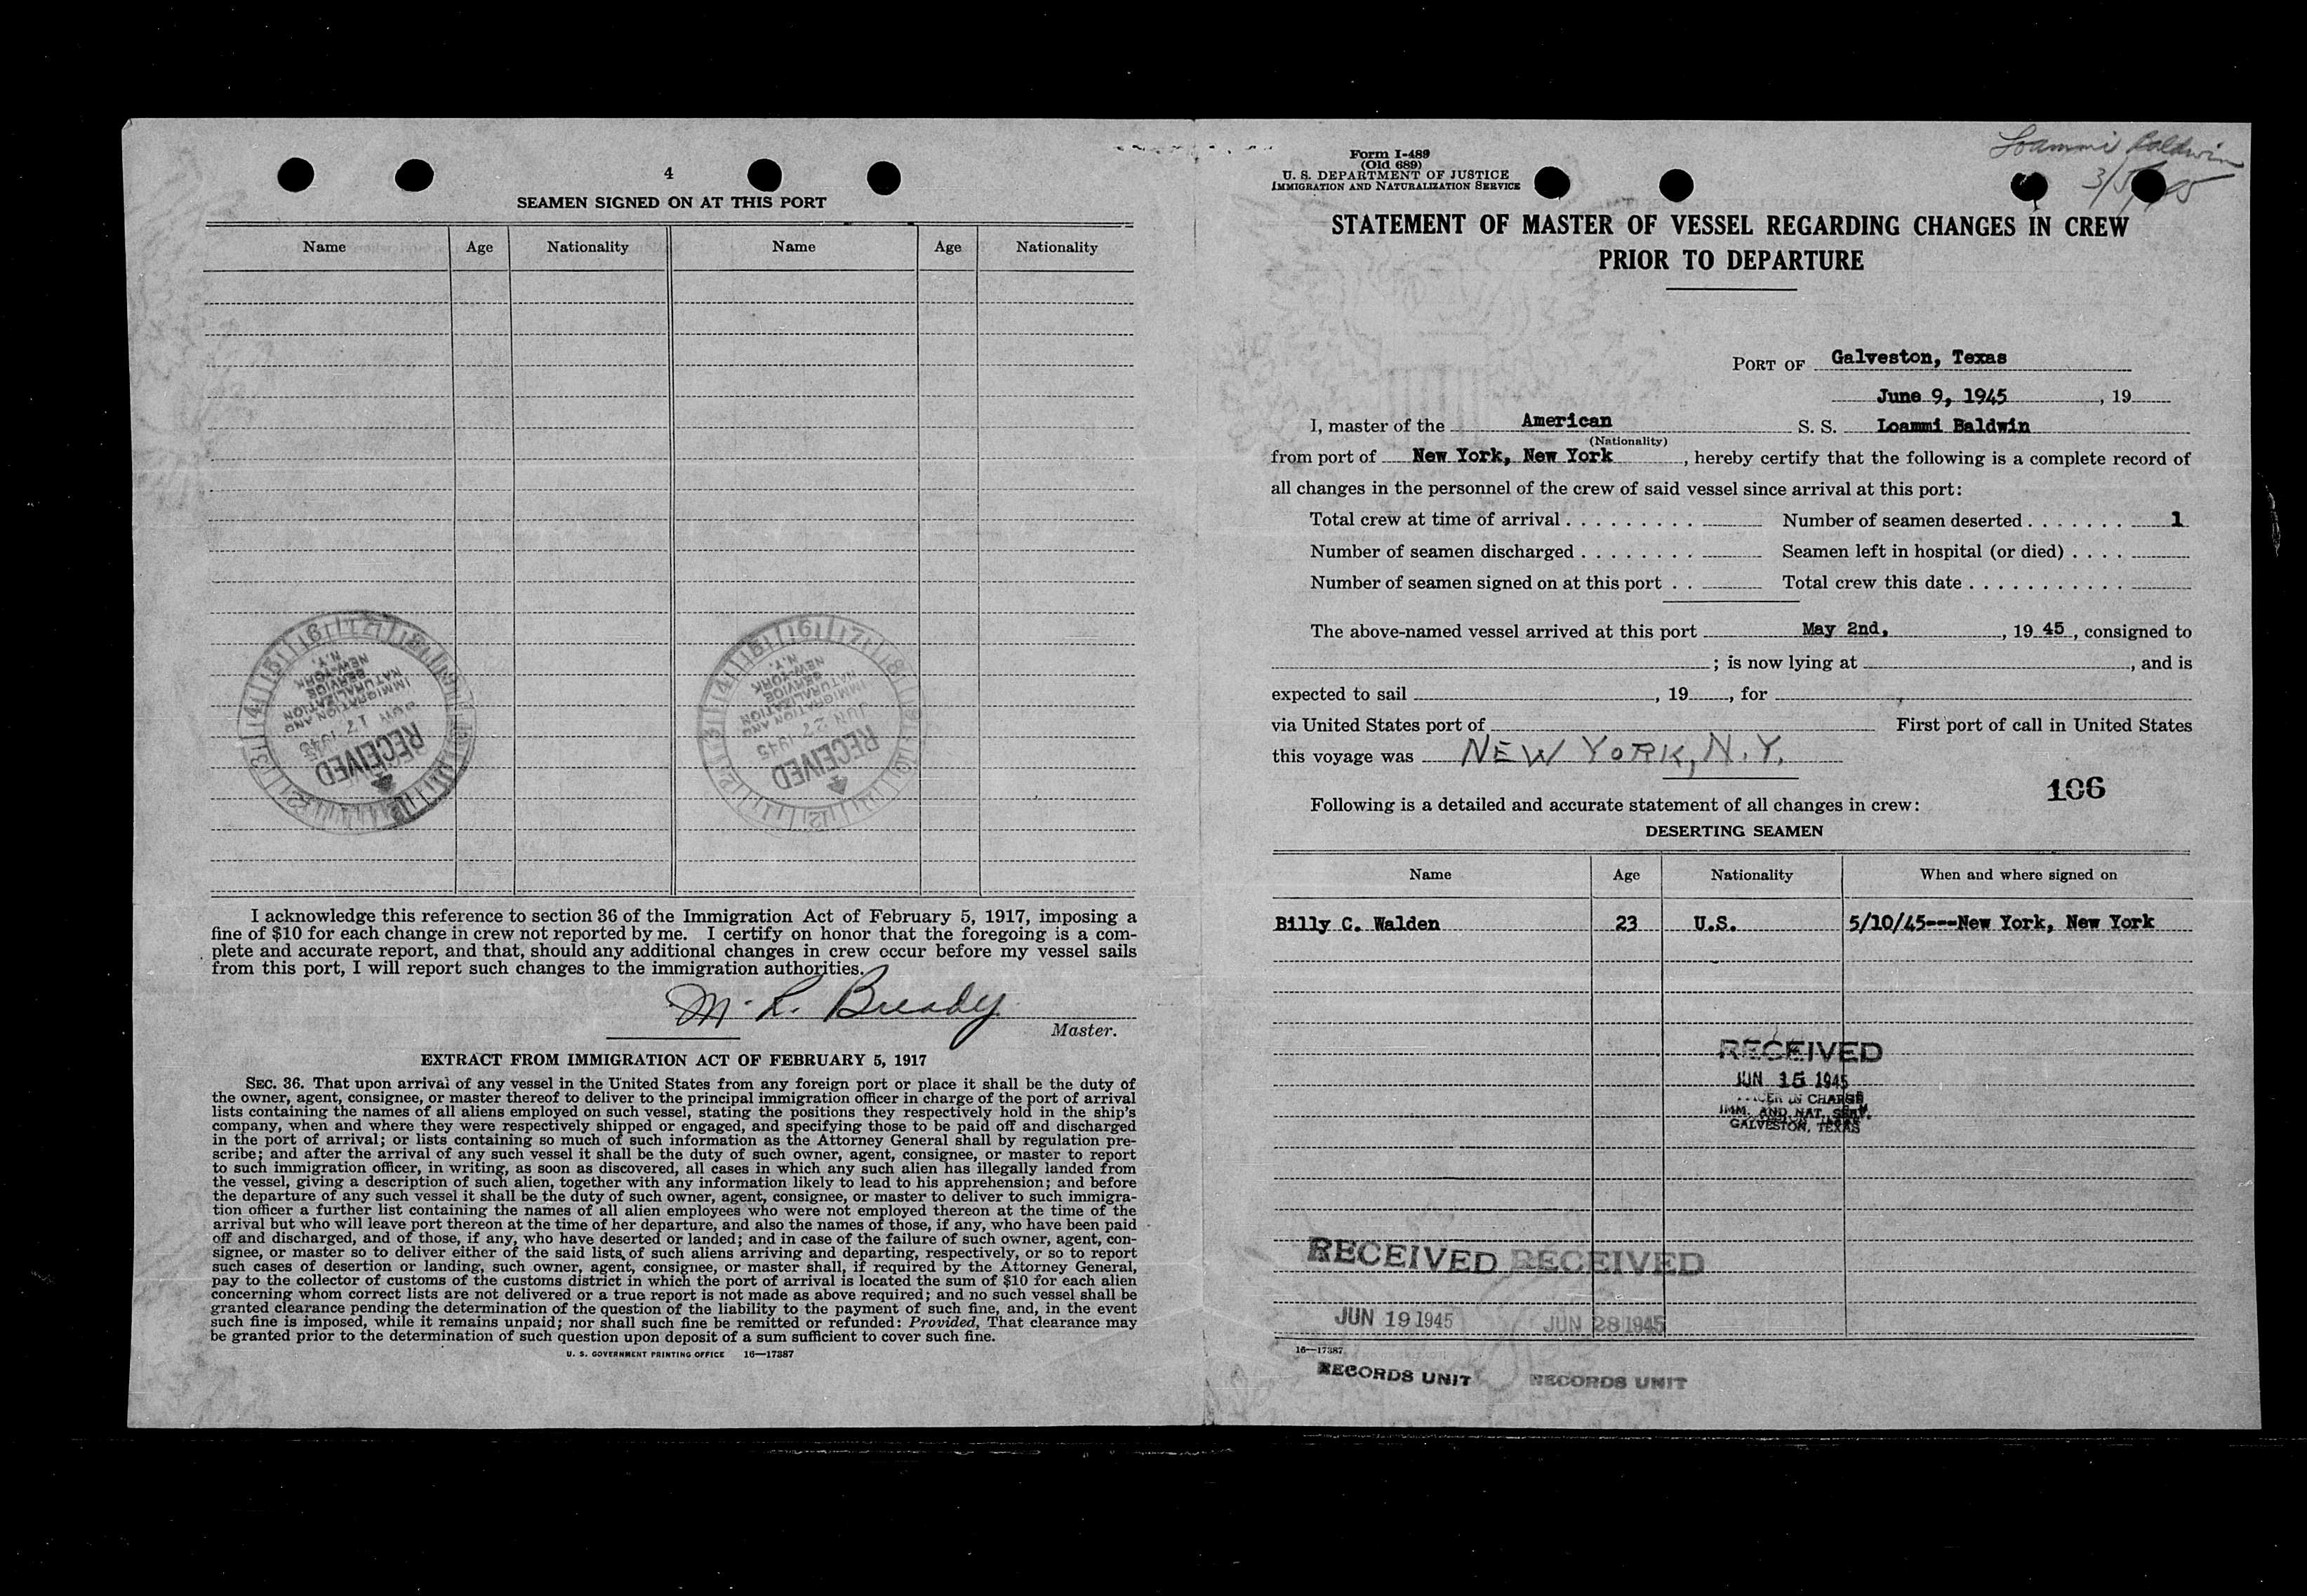 4
SEAMEN SIGNED ON AT THIS PORT
Name Age Nationality Name Age Nationality
6 7 8
5
4
3
2
1
12
NEW YORK
N.Y.
IMMIGRATION AND
NATURALIZATION
SERVICE
JUN 17 1945
RECEIVED
NEW YORK
N.Y.
IMMIGRATION AND
NATURALIZATION
SERVICE
JUN 27 1945
RECEIVED
I acknowledge this reference to section 36 of the Immigration Act of February 5, 1917, imposing a
fine of $10 for each change in crew not reported by me. I certify on honor that the foregoing is a com-
plete and accurate report, and that, should any additional changes in crew occur before my vessel sails
from this port, I will report such changes to the immigration authorities.
M. R.
Master.
EXTRACT FROM IMMIGRATION ACT OF FEBRUARY 5, 1917
SEC. 36. That upon arrival of any vessel in the United States from any foreign port or place it shall be the duty of
the owner, agent, consignee, or master thereof to deliver to the principal immigration officer in charge of the port of arrival
lists containing the names of all aliens employed on such vessel, stating the positions they respectively hold in the ship's
company, when and where they were respectively shipped or engaged, and specifying those to be paid off and discharged
in the port of arrival; or lists containing so much of such information as the Attorney General shall by regulation pre-
scribe; and after the arrival of any such vessel it shall be the duty of such owner, agent, consignee, or master to report
to such immigration officer, in writing, as soon as discovered, all cases in which any such alien has illegally landed from
the vessel, giving a description of such alien, together with any information likely to lead to his apprehension; and before
the departure of any such vessel it shall be the duty of such owner, agent, consignee, or master to deliver to such immigra-
tion officer a further list containing the names of all alien employees who were not employed thereon at the time of the
arrival but who will leave port thereon at the time of her departure, and also the names of those, if any, who have been paid
off and discharged, and of those, if any, who have deserted or landed; and in case of the failure of such owner, agent, con-
signee, or master so to deliver either of the said lists of such aliens arriving and departing, respectively, or so to report
such cases of desertion or landing, such owner, agent, consignee, or master shall, if required by the Attorney General,
pay to the collector of customs of the customs district in which the port of arrival is located the sum of $10 for each alien
concerning whom correct lists are not delivered or a true report is not made as above required; and no such vessel shall be
granted clearance pending the determination of the question of the liability to the payment of such fine, and, in the event
such fine is imposed, while it remains unpaid; nor shall such fine be remitted or refunded: Provided, That clearance may
be granted prior to the determination of such question upon deposit of a sum sufficient to cover such fine.
U. S. GOVERNMENT PRINTING OFFICE 16—17387
Loammi Baldwin
Form I-489
(Old 689)
U. S. DEPARTMENT OF JUSTICE
IMMIGRATION AND NATURALIZATION SERVICE
STATEMENT OF MASTER OF VESSEL REGARDING CHANGES IN CREW
PRIOR TO DEPARTURE
PORT OF Galveston, Texas
June 9, 1945, 19
I, master of the American S. S. Loammi Baldwin
(Nationality)
from port of New York, New York, hereby certify that the following is a complete record of
all changes in the personnel of the crew of said vessel since arrival at this port:
Total crew at time of arrival . . . . . . . . . Number of seamen deserted . . . . . . . 1
Number of seamen discharged . . . . . . . . Seamen left in hospital (or died) . . . .
Number of seamen signed on at this port . . Total crew this date . . . . . . . . . . . .
The above-named vessel arrived at this port May 2nd, , 19 45, consigned to
; is now lying at , and is
expected to sail , 19 , for
via United States port of First port of call in United States
this voyage was NEW YORK, N.Y.
106
Following is a detailed and accurate statement of all changes in crew:
DESERTING SEAMEN
Name Age Nationality When and where signed on
Billy C. Walden 23 U.S. 5/10/45---New York, New York
RECEIVED
JUN 15 1945
IN CHARGE
IMM. AND NAT. SERV.
GALVESTON, TEXAS
RECEIVED RECEIVED
JUN 19 1945 JUN 28 1945
16—17387
RECORDS UNIT RECORDS UNIT